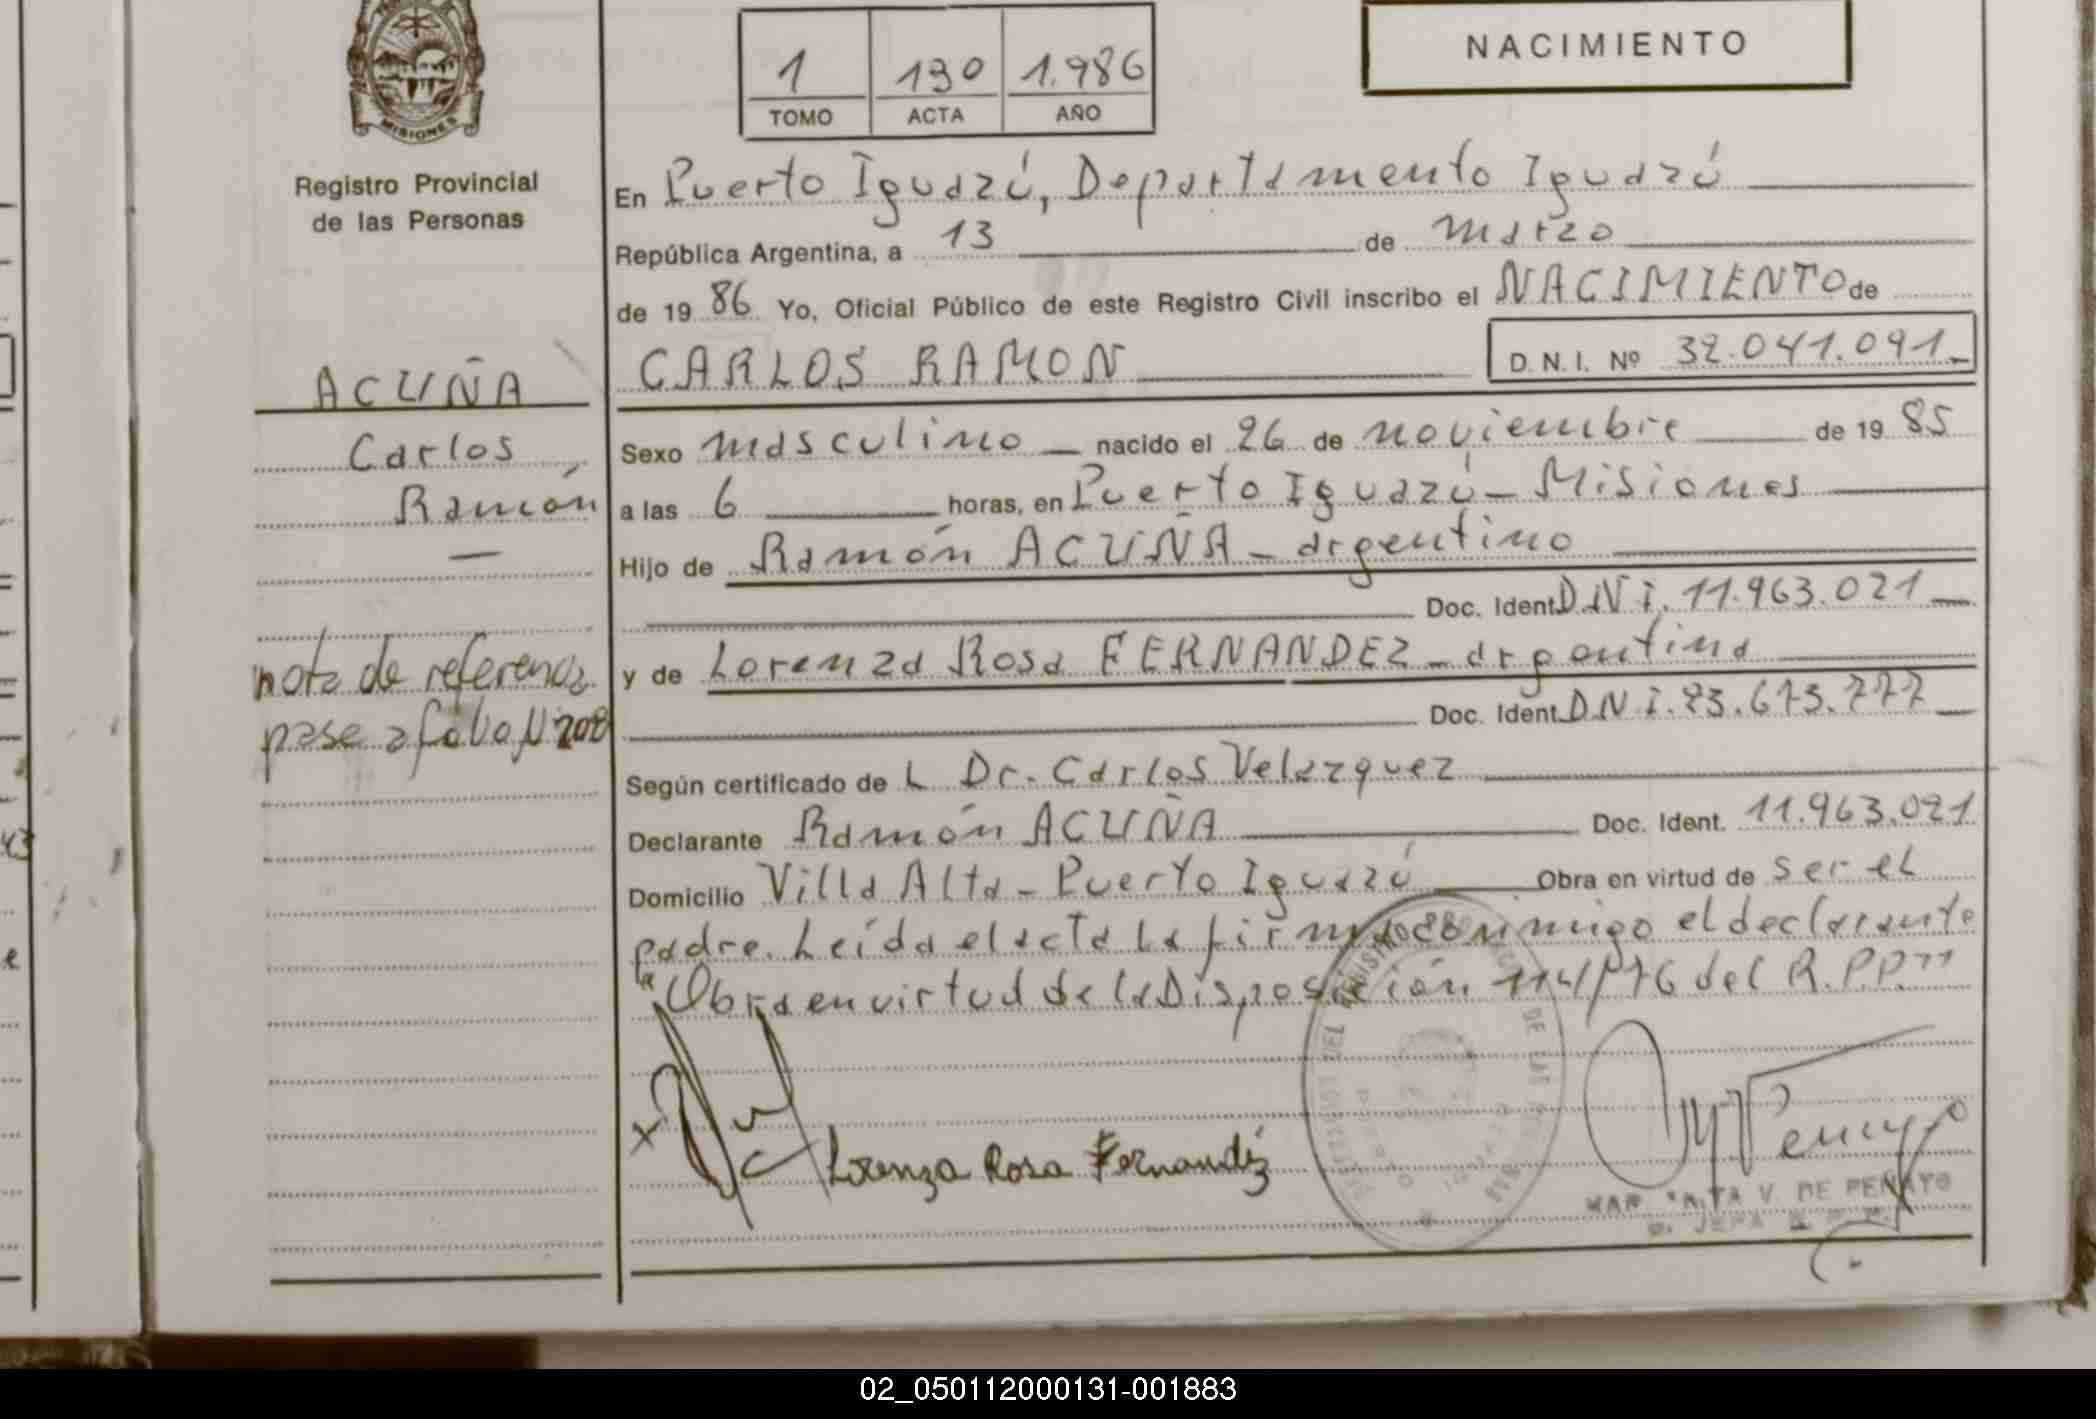 MISIONES
Registro Provincial
de las Personas
1 190 1.986
TOMO ACTA AÑO
NACIMIENTO
ACUÑA
Carlos
Ramón
—
nota de referencia
pase a folio N 208
En Puerto Iguazú, Departamento Iguazú
República Argentina, a 13 de marzo
de 19 86 Yo, Oficial Público de este Registro Civil inscribo el NACIMIENTO de
CARLOS RAMON D.N.I. Nº 32.041.091._
Sexo masculino _ nacido el 26 de noviembre de 19 85
a las 6 horas, en Puerto Iguazú _ Misiones
Hijo de Ramón ACUÑA _ argentino
Doc. Ident. D.N.I. 11.963.021 _
y de Lorenza Rosa FERNANDEZ _ argentina
Doc. Ident. D.N.I. 23.673.777 _
Según certificado de L Dr. Carlos Velazquez
Declarante Ramón ACUÑA Doc. Ident. 11.963.021
Domicilio Villa Alta _ Puerto Iguazú Obra en virtud de ser el
padre. Leída el acta la firma conmigo el declarante
"Obra en virtud de la Disposición 114/76 del R.P.P."
x
Lorenza Rosa Fernandez
V. DE PENAYO
02_050112000131-001883